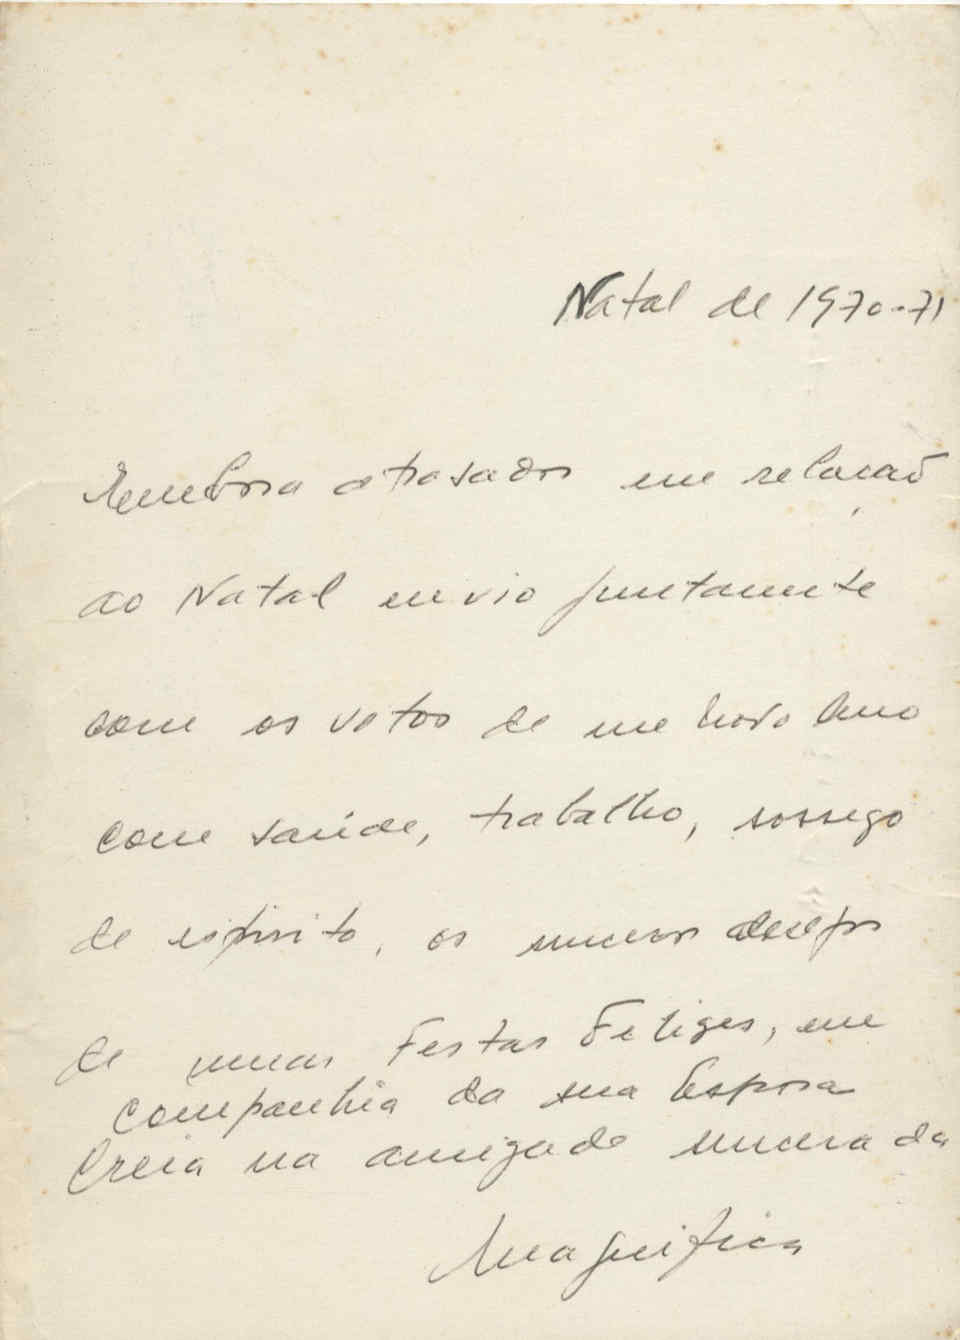 Natal de 1970-71
Embora atrasados em relação
ao Natal envio juntamente
com os votos de um novo Ano
com saúde, trabalho, sossego
de espirito, os sinceros desejos
de umas Festas Felizes, em
companhia da sua Esposa
Creia na amizade sincera da
Magnifica